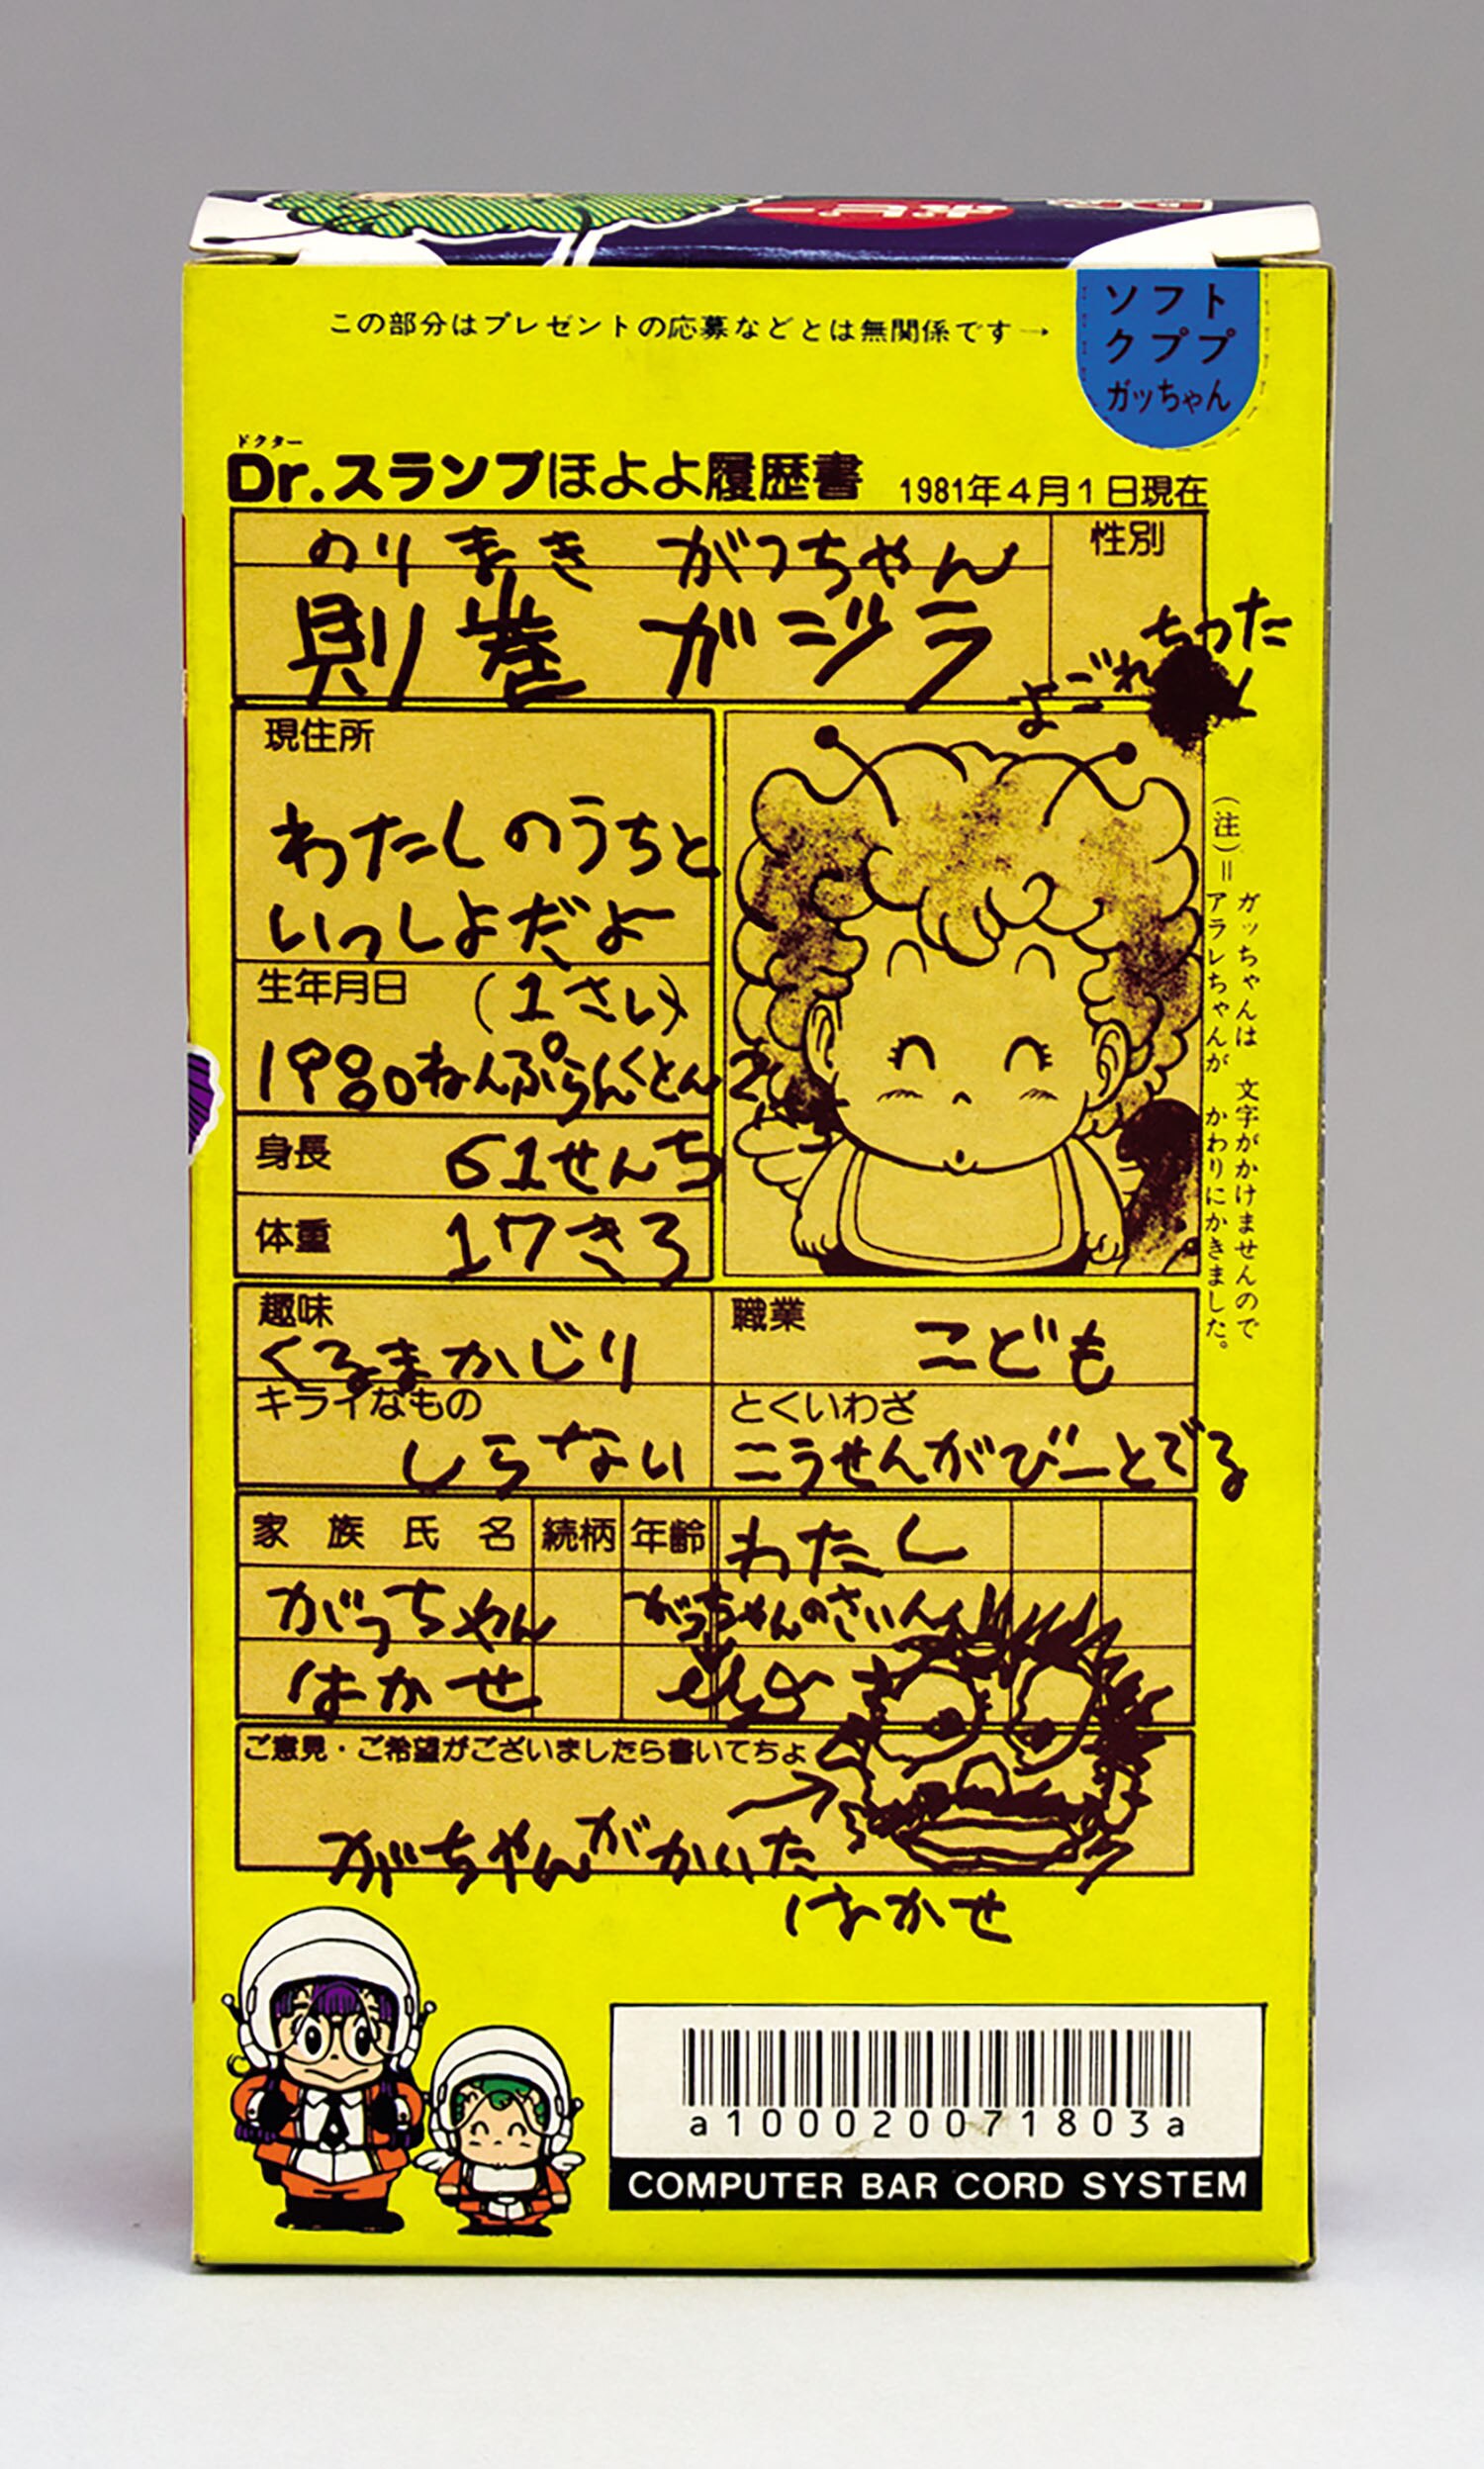 ポピー
この部分はプレゼントの応募などとは無関係です→
ソフト
クププ
ガッちゃん
ドクター
Dr.スランプほよよ履歴書 1981年4月1日現在
のりまき がっちゃん
性別
則巻 ガジラ
よごれちった
現住所
わたしのうちと
いっしよだよ
生年月日 (1さい)
1980ねんぷらんくとん
身長 61せんち
体重 17きろ
(注)=ガッちゃんは 文字がかけませんので
アラレちゃんが かわりにかきました。
趣味
くるまかじり
職業
こども
キライなもの
しらない
とくいわざ
こうせんがびーとでる
家族氏名 続柄 年齢 わたし
がっちゃん がっちゃんのさいん
はかせ
ご意見・ご希望がございましたら書いてちょ
がちゃんがかいた
はかせ
a100020071803a
COMPUTER BAR CORD SYSTEM